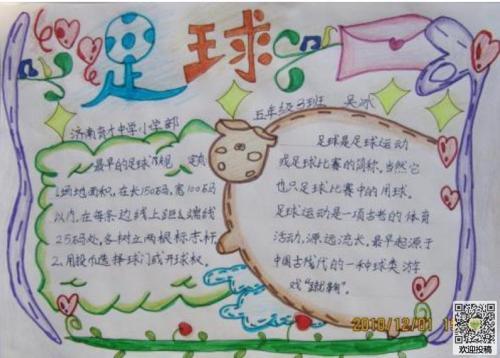 足球
五年级3班 吴冰
济南育才中学小学部
最早的足球规
1.场地面积,在长150码,宽100码
以内,在每条边线上距离端线
25码处,各树立两根标志杆
2.用投币选择球门或开球权。
足球是足球运动
或足球比赛的简称,当然它
也只足球比赛中的用球。
足球运动是一项古老的体育
活动,源远流长。最早起源于
中国古代的一种球类游
戏“蹴鞠”。
2010/12/01
欢迎投稿